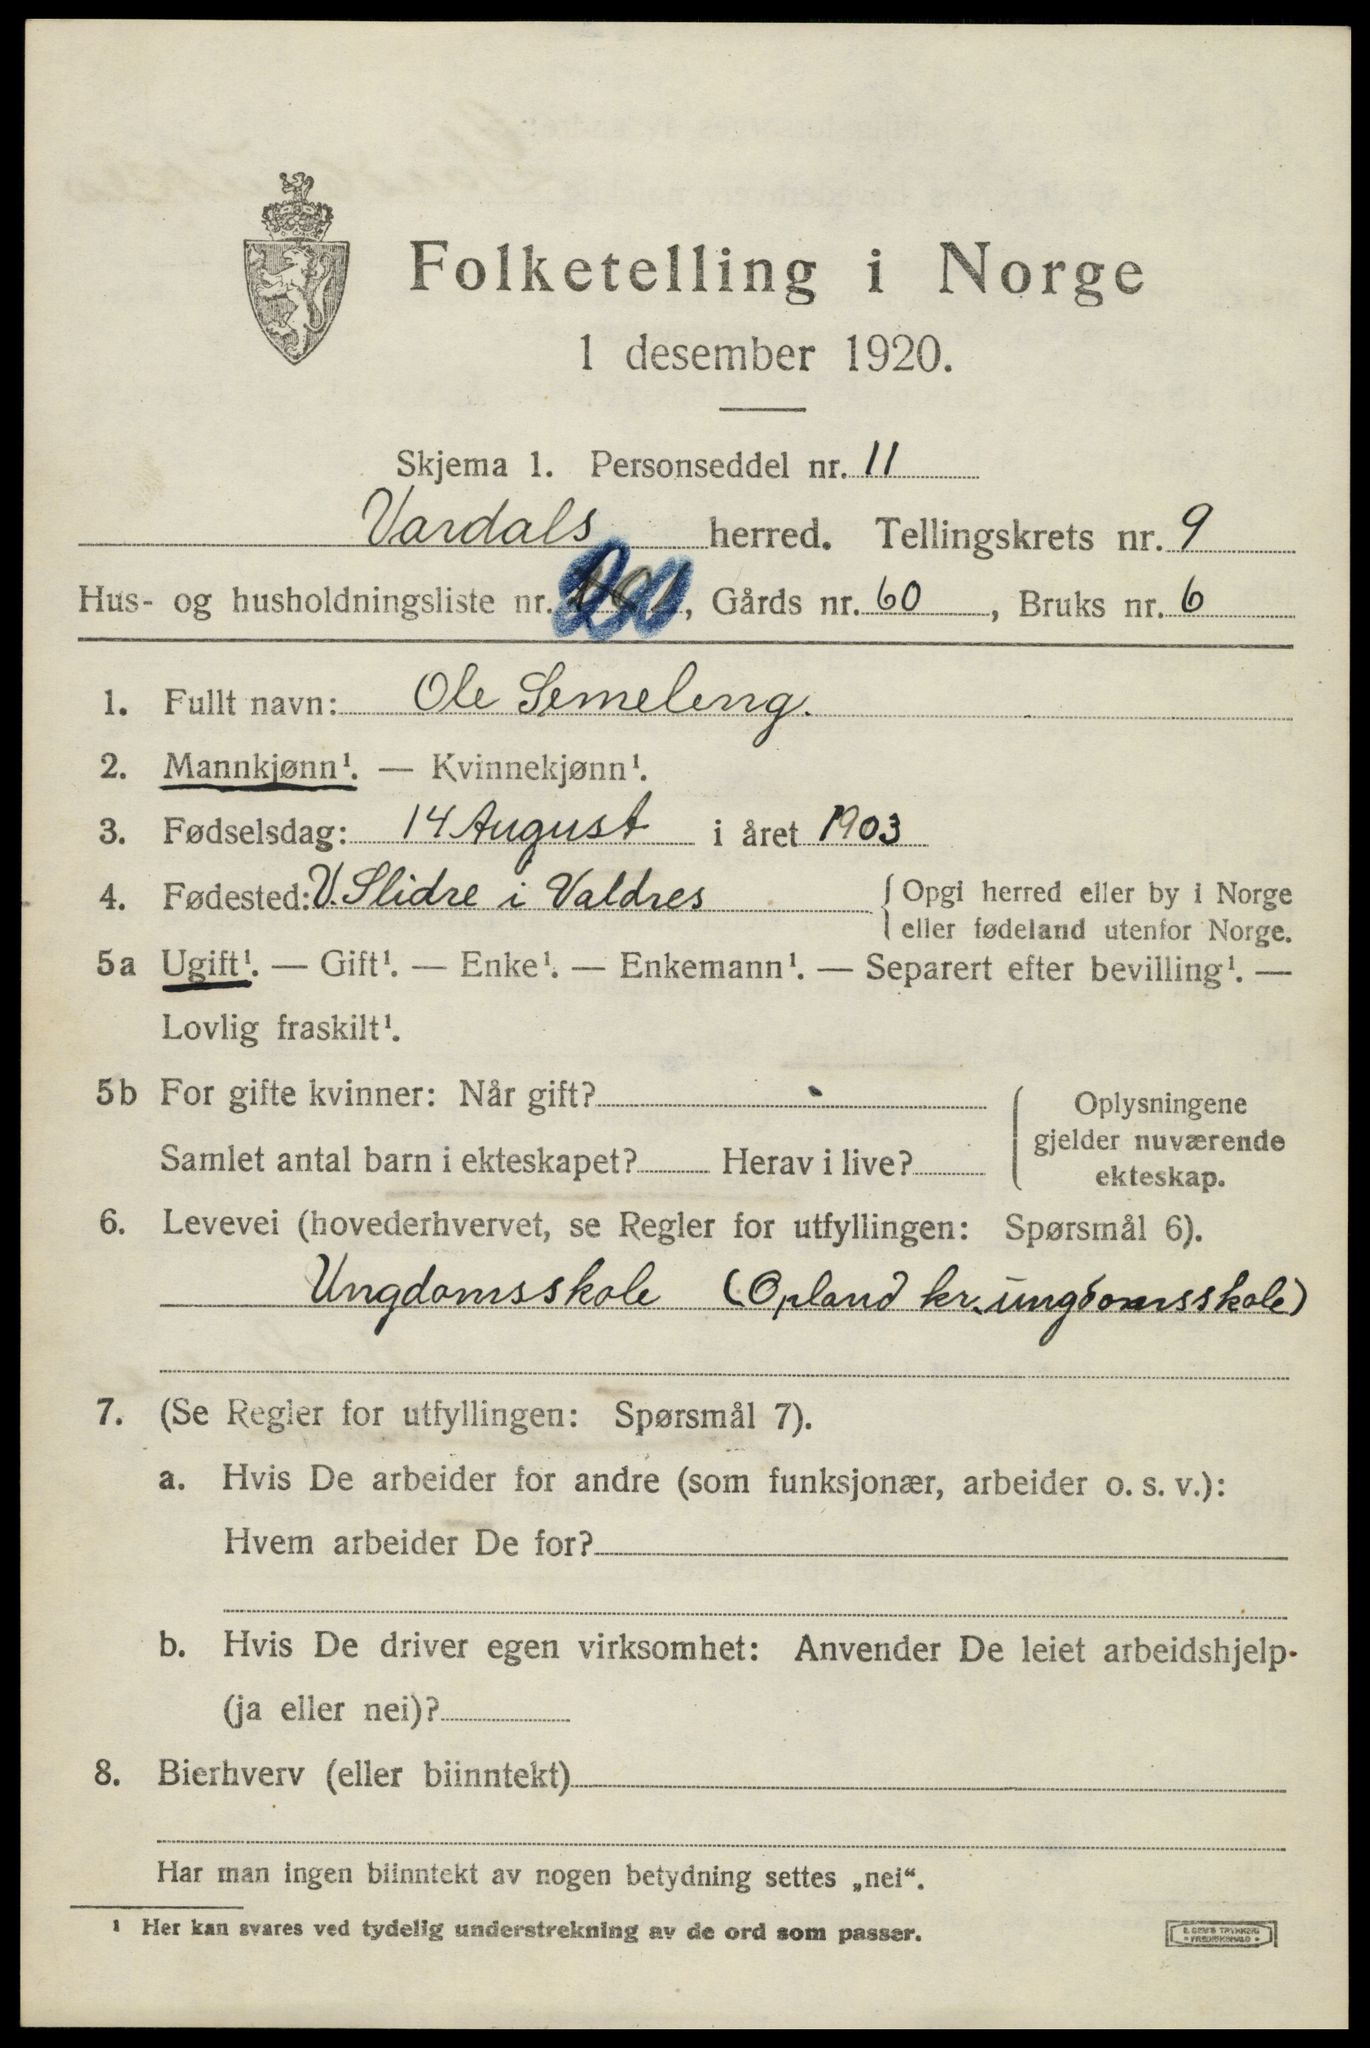 Folketelling i Norge
1 desember 1920.
Skjema 1. Personseddel nr. 11
Vardals herred. Tellingskrets nr. 9
Hus- og husholdningsliste nr. , Gårds nr. 60, Bruks nr. 6
1. Fullt navn: Ole Semeleng.
2. Mannkjønn¹. — Kvinnekjønn¹.
3. Fødselsdag: 14 August i året 1903
4. Fødested: V. Slidre i Valdres { Opgi herred eller by i Norge
eller fødeland utenfor Norge.
5a Ugift¹. — Gift¹. — Enke¹. — Enkemann¹. — Separert efter bevilling¹. —
Lovlig fraskilt¹.
5b For gifte kvinner: Når gift?
Samlet antal barn i ekteskapet? Herav i live?
Oplysningene
gjelder nuværende
ekteskap.
6. Levevei (hovederhvervet, se Regler for utfyllingen: Spørsmål 6).
Ungdomsskole (Opland kr. ungdomsskole)
7. (Se Regler for utfyllingen: Spørsmål 7).
a. Hvis De arbeider for andre (som funksjonær, arbeider o. s. v.):
Hvem arbeider De for?
b. Hvis De driver egen virksomhet: Anvender De leiet arbeidshjelp-
(ja eller nei)?
8. Bierhverv (eller biinntekt)
Har man ingen biinntekt av nogen betydning settes „nei“.
¹ Her kan svares ved tydelig understrekning av de ord som passer.